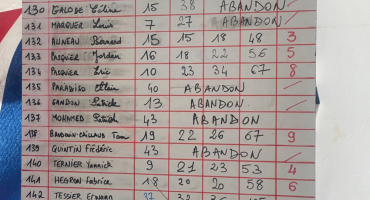 130 GALOBE Céline 15 38 ABANDON
131 MARQUER Louis 7 27 ABANDON
132 AUNEAU Bernard 15 15 18 48 3
133 PASQUER Jordan 16 18 22 56 5
134 PASQUER Eric 10 23 34 67 8
135 PARADISO Alain 40 ABANDON
136 GANDON Patrick 13 ABANDON
137 MOHAMED Patrick 43 ABANDON
138 Tom 19 22 26 67 9
139 QUINTIN Frédéric 43 ABANDON
140 TERNIER Yannick 9 21 23 53 4
141 HEGRON Fabrice 18 20 20 58 6
142 TESSIER